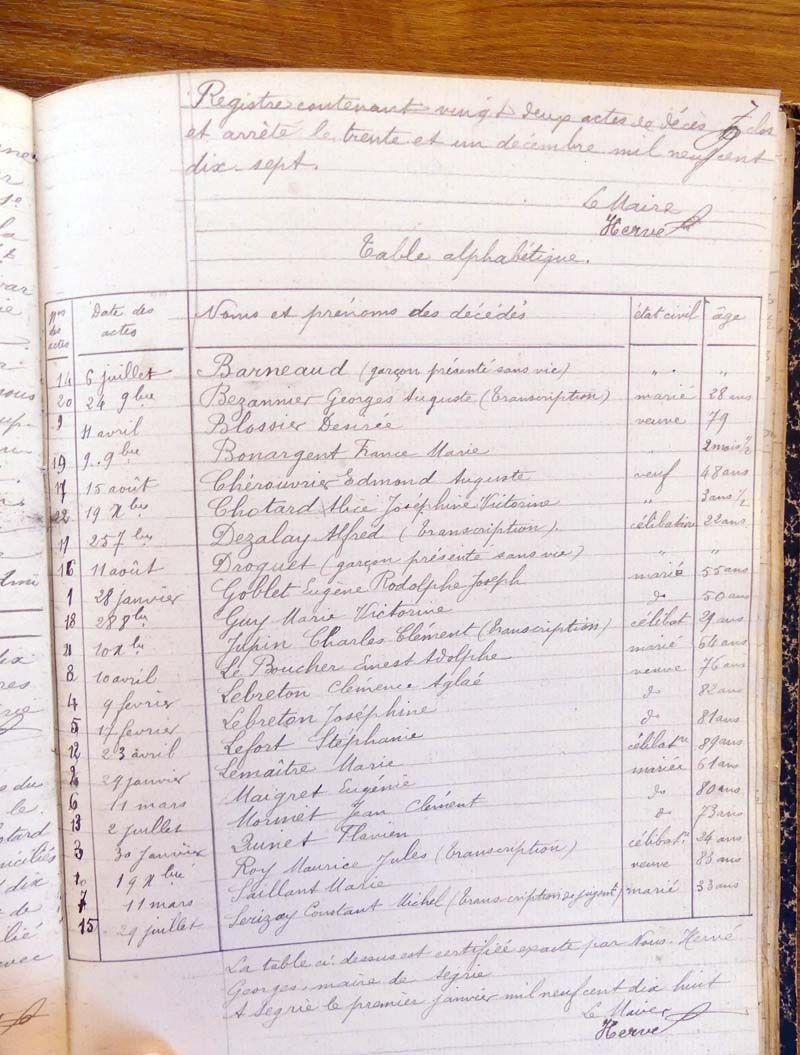 Registre contenant vingt deux actes de décès clos
et arrêté le trente et un décembre mil neuf cent
dix-sept.
Le Maire
Hervé
Table alphabétique.
Nos des actes Date des actes Noms et prénoms des décédés état civil âge
14 6 juillet Barneaud (garçon présenté sans vie) " " "
20 24 9bre Bezannier Georges Auguste (Transcription) marié 28 ans
9 11 avril Blossier Desirée veuve 79
19 9 9bre Bonargent France Marie " 2 mois 1/2
17 15 août Chérouvrier Edmond Auguste veuf 48 ans
22 19 Xbre Chotard Alice Joséphine Victorine " 3 ans 1/2
11 25 7bre Dezalay Alfred (Transcription). célibataire 22 ans
16 11 août Droguet (garçon présente sans vie) " "
1 28 janvier Goblet Eugène Rodolphe Joseph marié 55 ans
18 28 8bre Guy Marie Victorine do 50 ans
21 10 Xbre Jupin Charles Clément (Transcription) célibat 29 ans
8 10 avril Le Boucher Ernest Adolphe marié 64 ans
4 9 février Lebreton Clémence Aglaé veuve 76 ans
5 17 février Lebreton Joséphine do 82 ans
12 23 avril Lefort Stéphanie do 81 ans
2 29 janvier Lemaître Marie célibatre 89 ans
6 11 mars Maigret Eugénie mariée 61 ans
13 2 juillet Morinet Jean Clément do 80 ans
3 30 janvier Quinet Flavien do 73 ans
10 19 Xbre Roy Maurice Jules (Transcription) célibatre 24 ans
7 11 mars Saillant Marie veuve 83 ans
15 29 juillet Serizay Constant Michel (Transcription de jugent) marié 33 ans
La table ci-dessus est certifiée exacte par Nous. Hervé
Georges, maire de Segrie
A Segrie le premier janvier mil neuf cent dix huit
Le Maire
Hervé